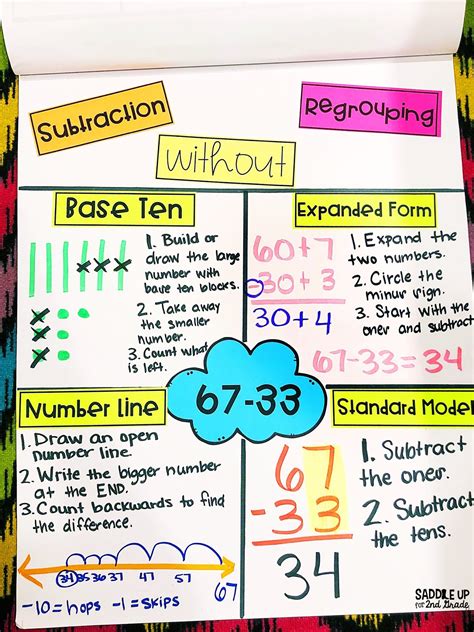 Subtraction
Regrouping
Without
Base Ten
1. Build or
draw the large
number with
base ten blocks.
2. Take away
the smaller
number.
3. Count what
is left.
Expanded Form
60+7
-30+3
30+4
1. Expand the
two numbers.
2. Circle the
minus sign.
3. Start with the
ones and subtract
67-33=34
67-33
Number Line
1. Draw an open
number line.
2. Write the bigger number
at the END.
3. Count backwards to find
the difference.
34 35 36 37 47 57 67
-10=hops -1=skips
Standard Model
67
-33
34
1. Subtract
the ones.
2. Subtract
the tens.
SADDLE UP
for 2nd Grade